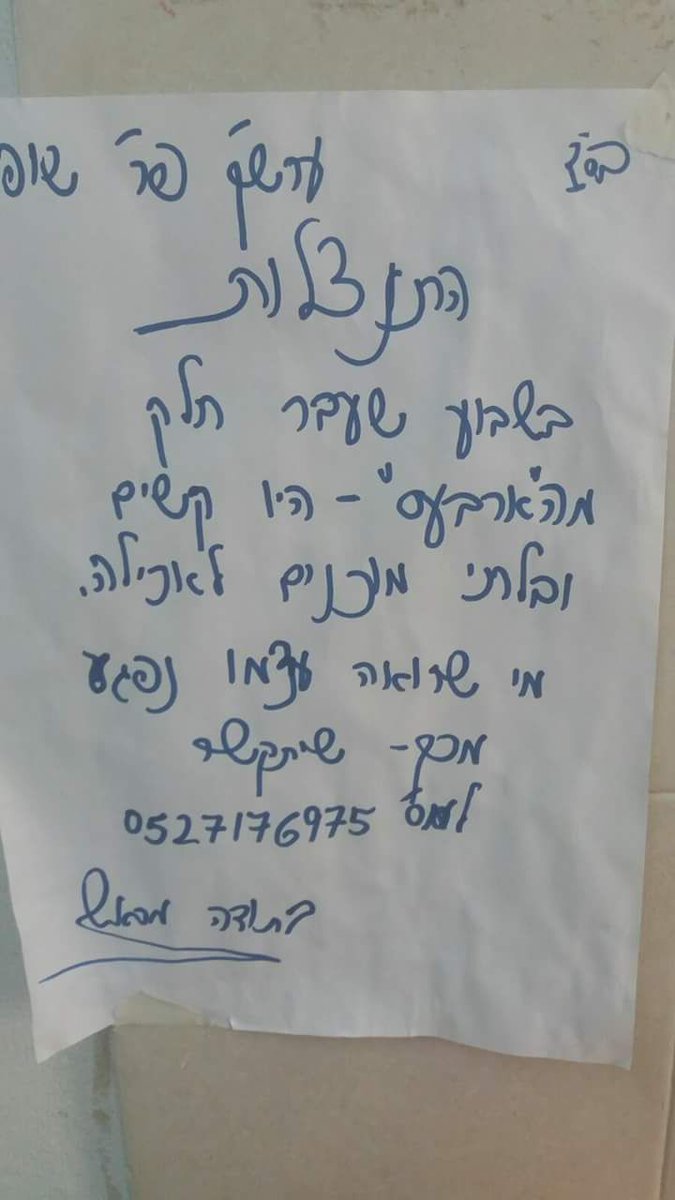 בס"ד ערש"ק פר' שופ
התנצלות
בשבוע שעבר חלק
מה"ארבעס" - היו קשים
ובלתי מוכנים לאכילה.
מי שרואה עצמו נפגע
מכך - שיתקשר
0527176975
בתודה מראש